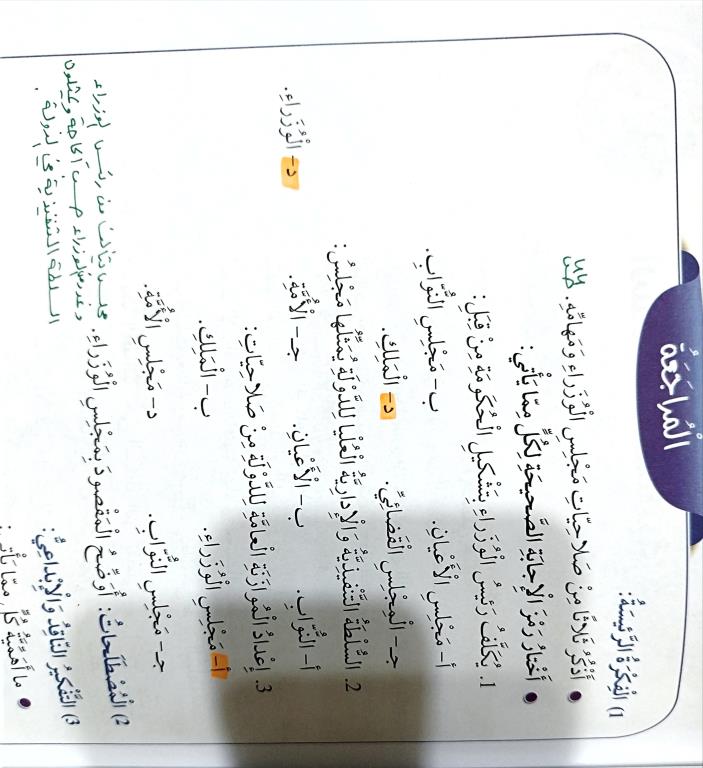 الْمُرَاجَعَةُ
1) الْفِكْرَةُ الرَّئِيسَةُ:
• أَذْكُرُ ثَلَاثًا مِنْ صَلَاحِيَّاتِ مَجْلِسِ الْوُزَرَاءِ وَمَهَامِّهِ.
• أَخْتَارُ رَمْزَ الْإِجَابَةِ الصَّحِيحَةِ لِكُلٍّ مِمَّا يَأْتِي:
1. يُكَلَّفُ رَئِيسُ الْوُزَرَاءِ بِتَشْكِيلِ الْحُكُومَةِ مِنْ قِبَلِ:
أ- مَجْلِسِ الْأَعْيَانِ. ب- مَجْلِسِ النُّوَّابِ.
جـ- الْمَجْلِسِ الْقَضَائِيِّ. د- الْمَلِكِ.
2. السُّلْطَةُ التَّنْفِيذِيَّةُ وَالْإِدَارِيَّةُ الْعُلْيَا لِلدَّوْلَةِ يُمَثِّلُهَا مَجْلِسُ:
أ- النُّوَّابِ. ب- الْأَعْيَانِ. جـ- الْأُمَّةِ. د- الْوُزَرَاءِ.
3. إِعْدَادُ الْمُوَازَنَةِ الْعَامَّةِ لِلدَّوْلَةِ مِنْ صَلَاحِيَّاتِ:
أ- مَجْلِسِ الْوُزَرَاءِ. ب- الْمَلِكِ.
جـ- مَجْلِسِ النُّوَّابِ. د- مَجْلِسِ الْأُمَّةِ.
2) الْمُصْطَلَحَاتُ: أُوَضِّحُ الْمَقْصُودَ بِمَجْلِسِ الْوُزَرَاءِ.
مجلس يتألف من رئيس الوزراء
وعدد من الوزراء حسب الحاجة ويمثلون
السلطة التنفيذية في الدولة.
3) التَّفْكِيرُ النَّاقِدُ وَالْإِبْدَاعِيُّ:
• مَا أَهَمِّيَّةُ كُلٍّ مِمَّا يَأْتِي: